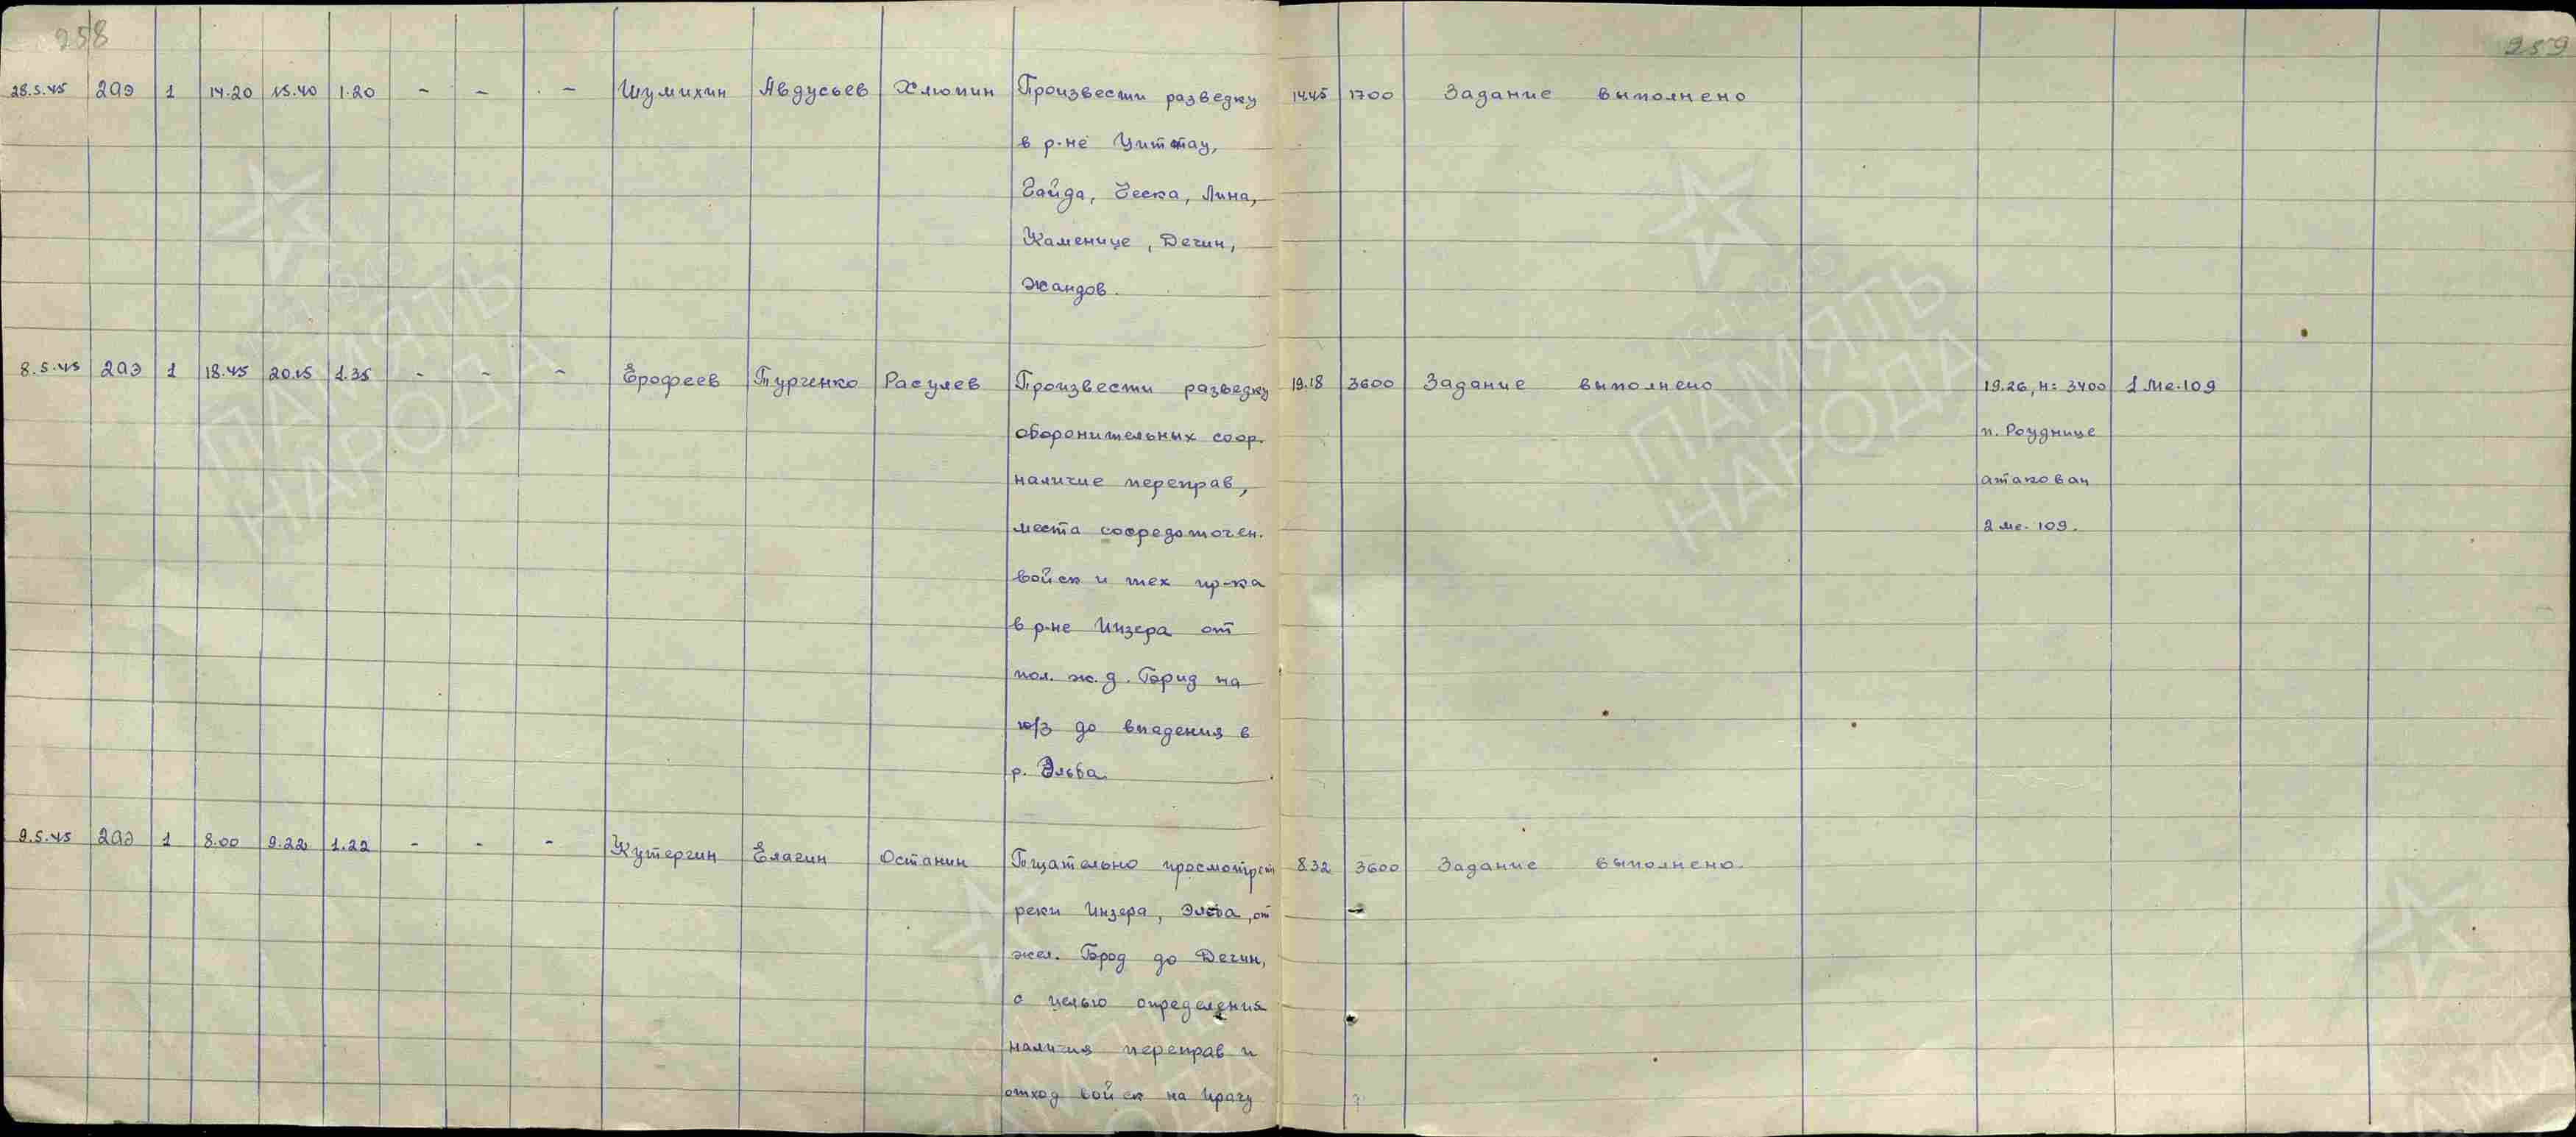 258
259
28.5.45 2аэ 1 14.20 15.40 1.20 - - - Шумихин Авдусьев Хлюпин Произвести разведку 14.45 1700 Задание выполнено
в р-не Циттау,
Гайда, Ческа, Липа,
Каменице, Дечин,
Жандов.
8.5.45 2аэ 1 18.45 20.15 1.35 - - - Ерофеев Турченко Расулев Произвести разведку 19.18 3600 Задание выполнено 19.26, Н= 3400 1 Ме-109
оборонительных соор. п. Роуднице
наличие переправ, атакован
места сосредоточен. 2 ме-109.
войск и тех пр-ка
в р-не Инзера от
пол. ж.д. на
ю/з до впадения в
р. Эльба.
9.5.45 2аэ 1 8.00 9.22 1.22 - - - Кутергин Елагин Останин Тщательно просмотрет 8.32 3600 Задание выполнено.
реки Инзера, Эльба, от
жел. Брод до Дечин,
с целью определения
наличия переправ и
отход войск на Прагу
ПАМЯТЬ
НАРОДА
1941-1945
ПАМЯТЬ
НАРОДА